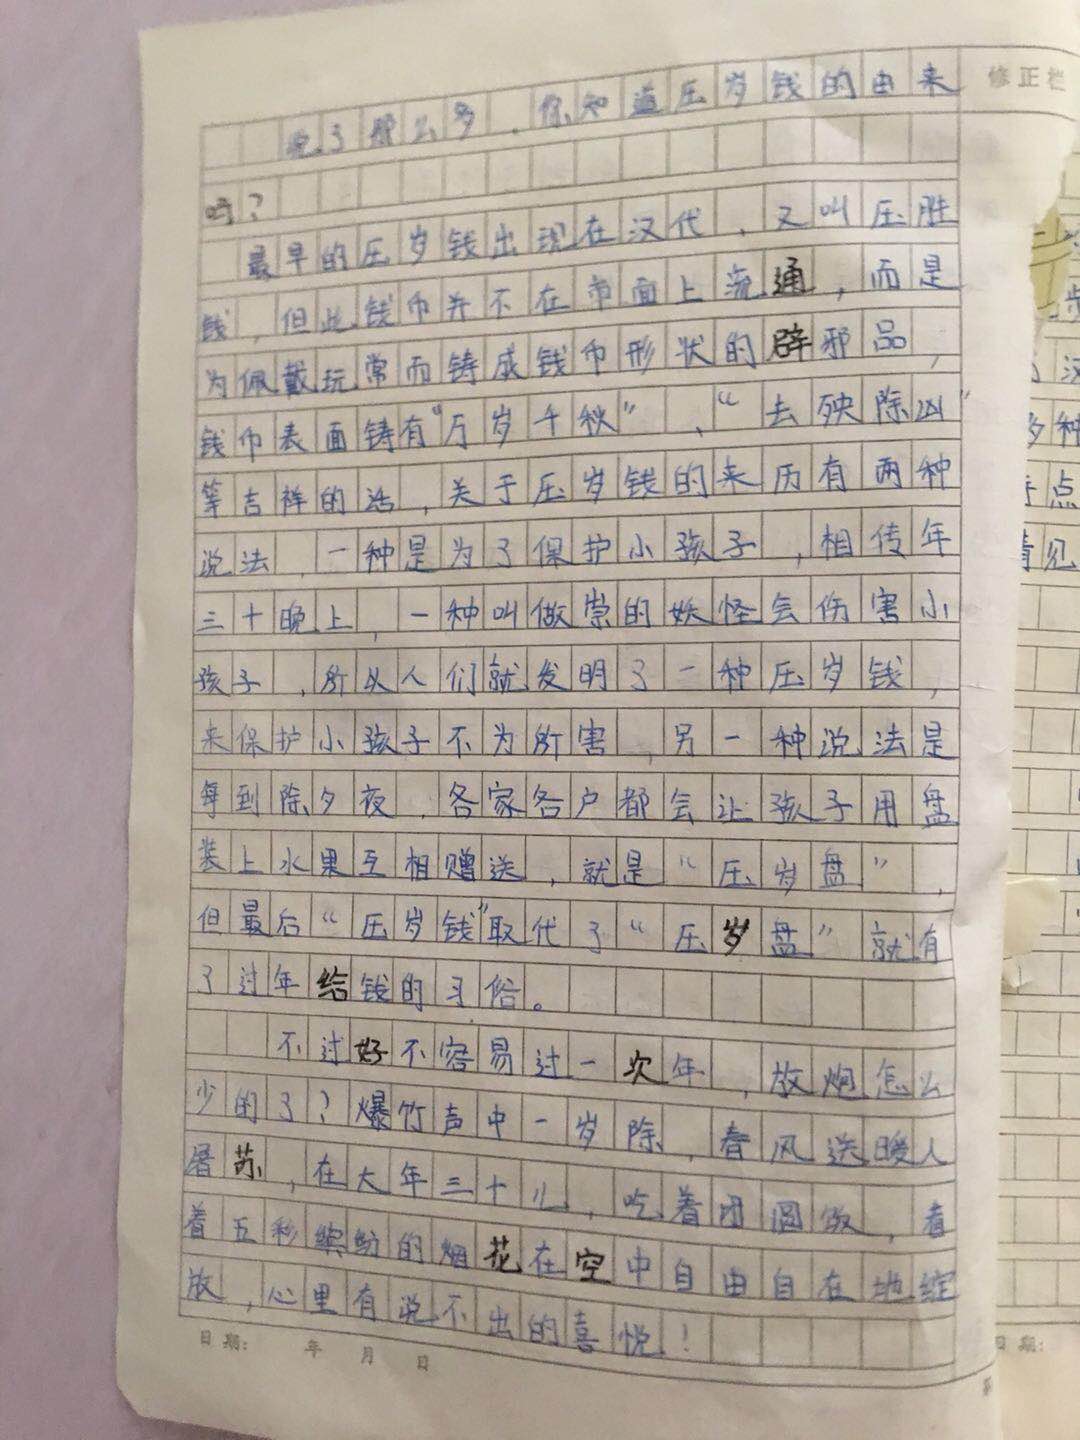 修正栏
说了那么多，你知道压岁钱的由来
吗？
最早的压岁钱出现在汉代，又叫压胜
钱，但此钱币并不在市面上流通，而是
为佩戴玩常而铸成钱币形状的辟邪品，
钱币表面铸有“万岁千秋”、“去殃除凶”
等吉祥的话，关于压岁钱的来历有两种
说法，一种是为了保护小孩子，相传年
三十晚上，一种叫做崇的妖怪会伤害小
孩子，所以人们就发明了一种压岁钱，
来保护小孩子不为所害，另一种说法是
每到除夕夜，各家各户都会让孩子用盘
装上水果互相赠送，就是“压岁盘”，
但最后“压岁钱”取代了“压岁盘”就有
了过年给钱的习俗。
不过好不容易过一次年，放炮怎么
少的了？爆竹声中一岁除，春风送暖人
屠苏，在大年三十儿，吃着团圆饭，看
着五彩缤纷的烟花在空中自由自在地绽
放，心里有说不出的喜悦！
日期： 年 月 日
多种
点
见
日期：